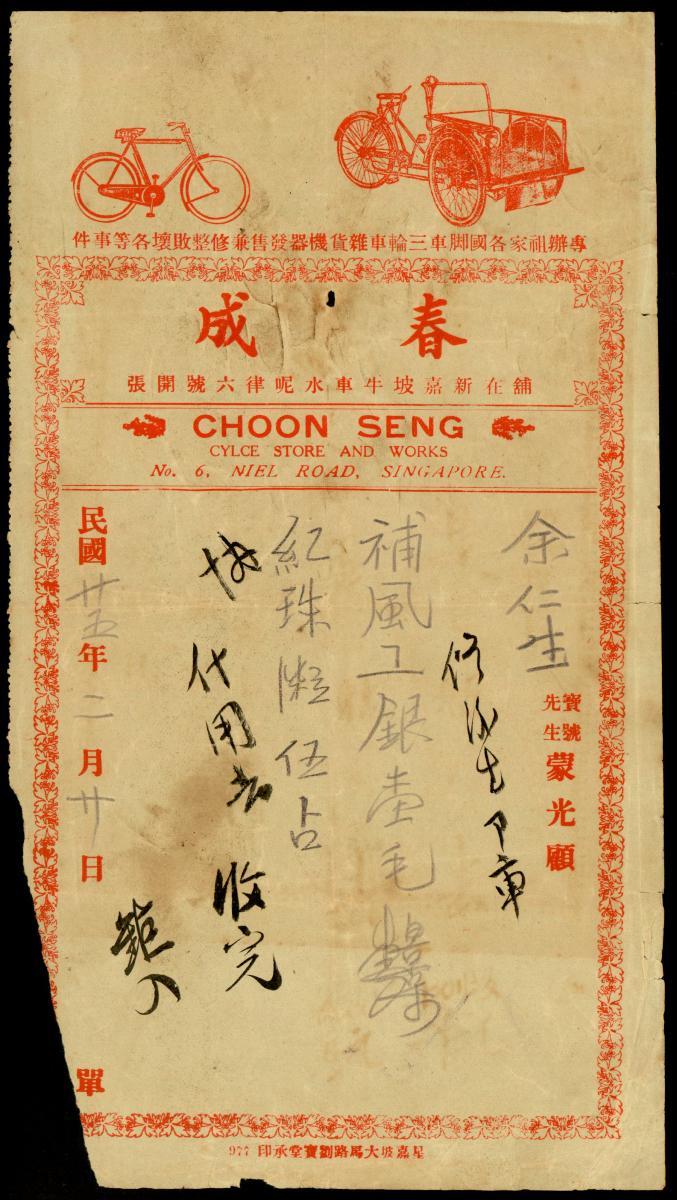 專辦祖家各國脚車三輪車雜貨機器發售兼修整敗壞各等事件
春成
舖在新嘉坡牛車水呢律六號開張
CHOON SENG
CYLCE STORE AND WORKS
No. 6, NIEL ROAD, SINGAPORE.
余仁生
寶號
先生
蒙光顧
補風工銀壹毛
紅珠
伍占
代用
收完
民國廿五年二月廿日
單
星嘉坡大馬路劉寶堂承印 977